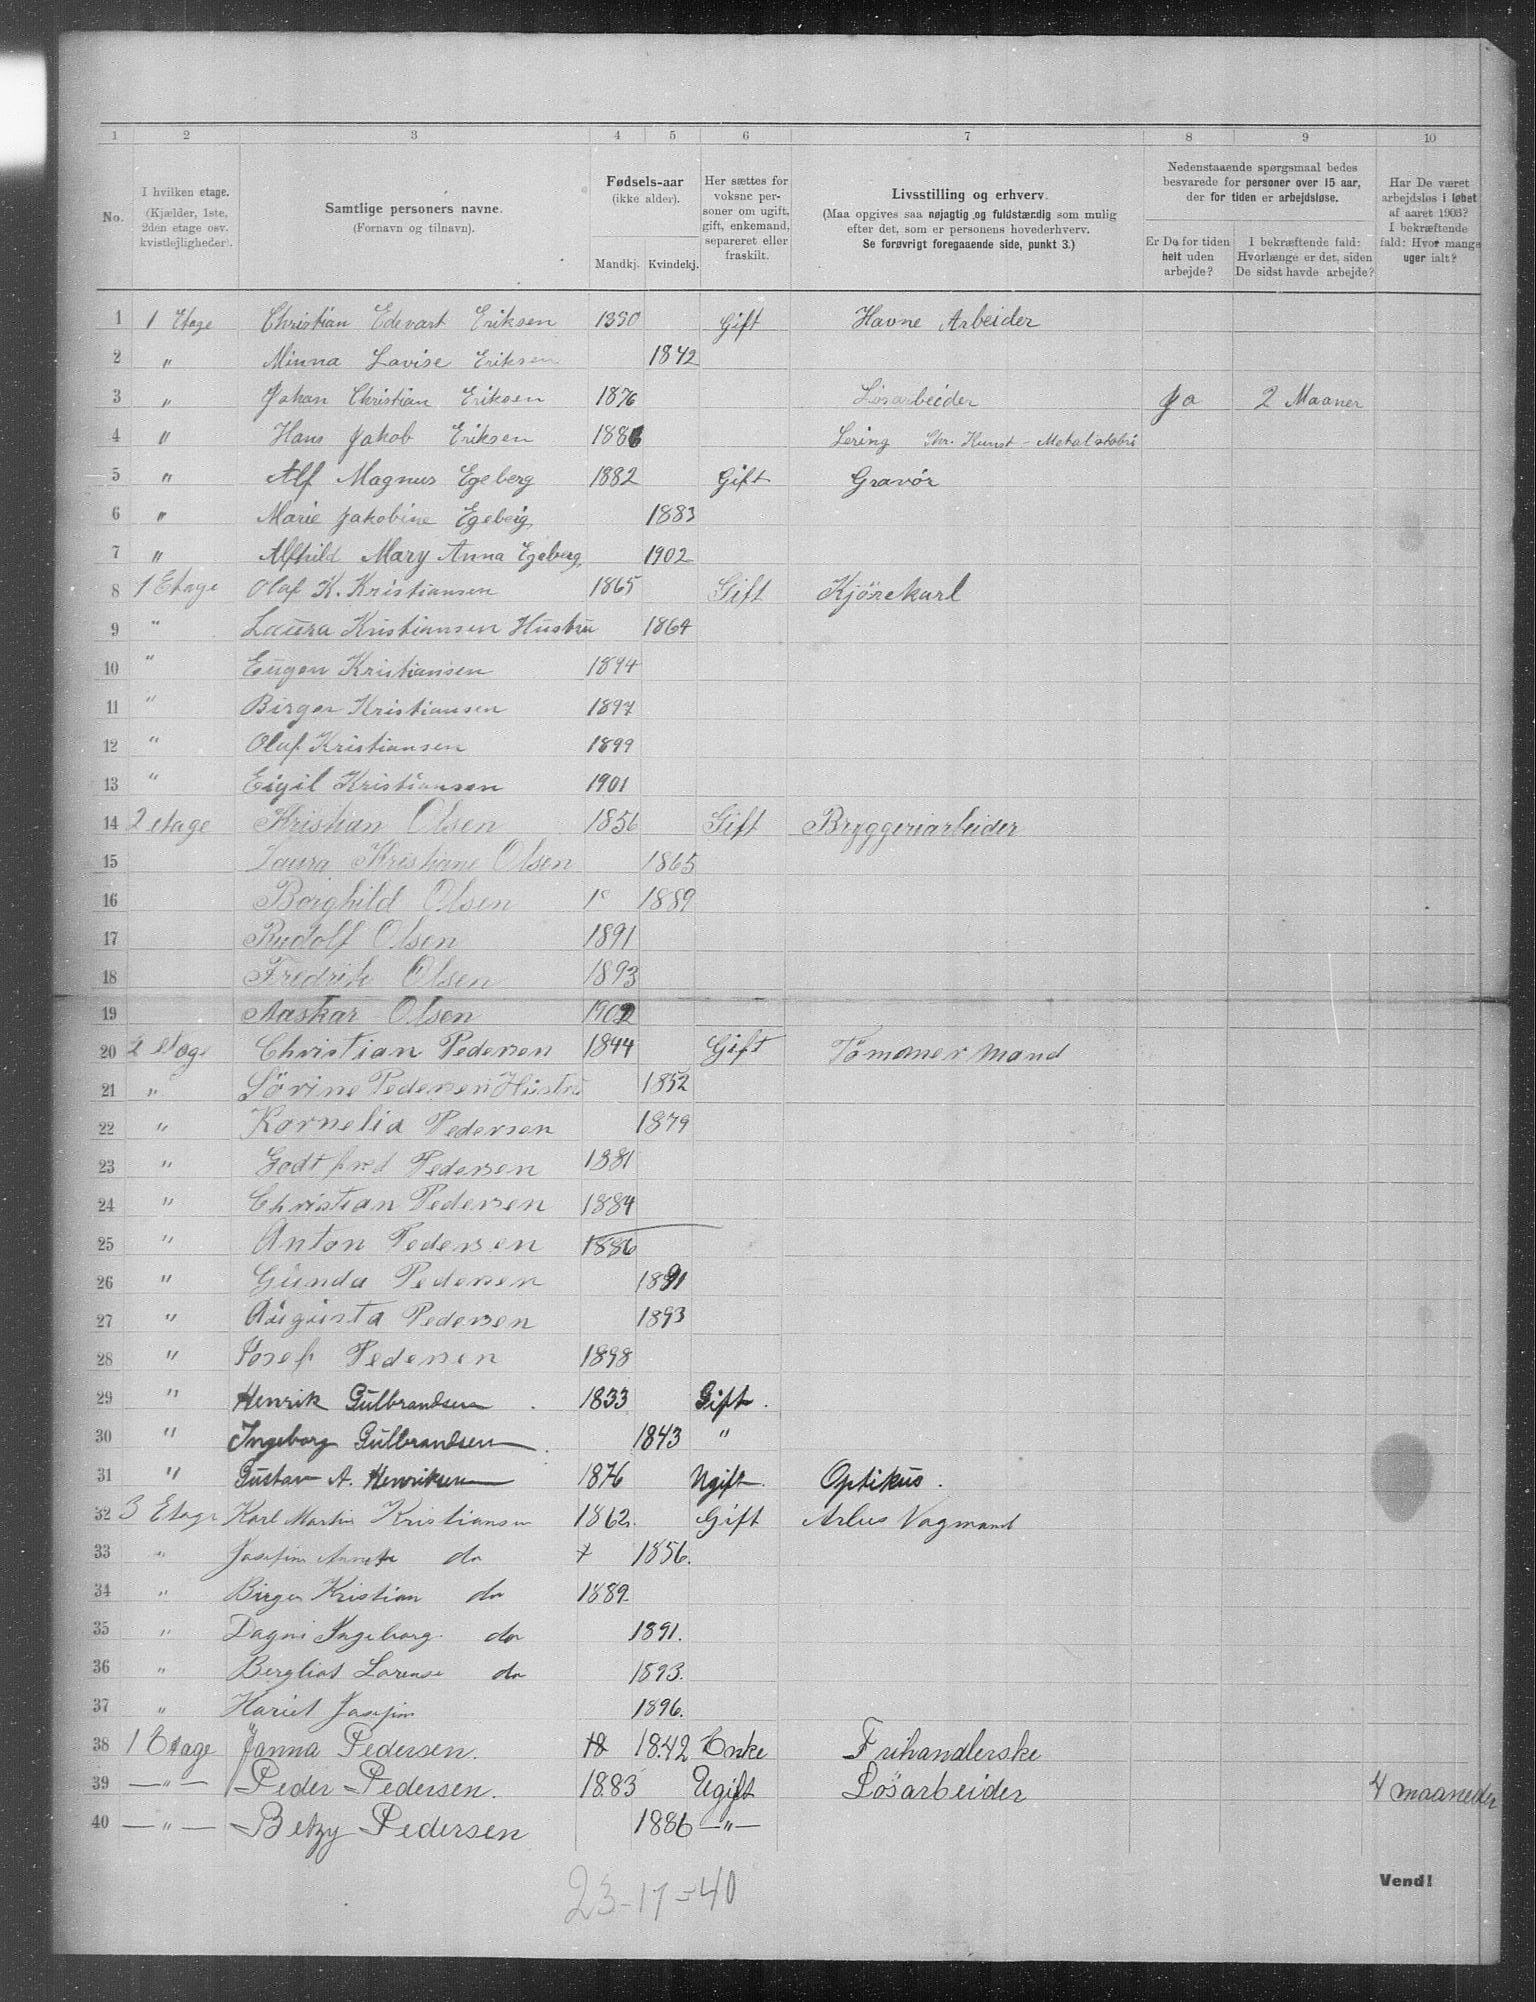 1 2 3 4 5 6 7 8 9 10
No.
I hvilken etage. (Kjælder, 1ste, 2den etage osv. kvistlejligheder).
Samtlige personers navne. (Fornavn og tilnavn).
Fødsels-aar (ikke alder). Mandkj. Kvindekj.
Her sættes for voksne personer om ugift, gift, enkemand, separeret eller fraskilt.
Livsstilling og erhverv. (Maa opgives saa nøjagtig og fuldstændig som mulig efter det, som er personens hovederhverv. Se forøvrigt foregaaende side, punkt 3.)
Nedenstaaende spørgsmaal bedes besvarede for personer over 15 aar, der for tiden er arbejdsløse.
Er De for tiden helt uden arbejde?
I bekræftende fald: Hvorlænge er det, siden De sidst havde arbejde?
Har De været arbejdsløs i løbet af aaret 1903? I bekræftende fald: Hvor mange uger ialt?
1 1 Etage Christian Edevart Eriksen 1850 Gift Havne Arbeider
2 " Minna Lovise Eriksen 1842
3 " Johan Christian Eriksen 1876 Løsarbeider Ja 2 Maaner
4 " Hans Jakob Eriksen 1886 Lering Kunst-Metal
5 " Alf Magnus Egeberg 1882 Gift Gravør
6 " Marie Jakobine Egeberg 1883
7 " Alfhild Mary Anna Egeberg 1902
8 1 Etage Olaf K. Kristiansen 1865 Gift Kjørekarl
9 " Laura Kristiansen Hustru 1864
10 " Eugen Kristiansen 1894
11 " Birger Kristiansen 1897
12 " Olaf Kristiansen 1899
13 " Eigil Kristiansen 1901
14 2 etage Kristian Olsen 1856 Gift Bryggeriarbeider
15 Laura Kristiane Olsen 1865
16 Borghild Olsen 1889
17 Rudolf Olsen 1891
18 Fredrik Olsen 1893
19 Aaskar Olsen 1902
20 2 etage Christian Pedersen 1844 Gift Tømmermand
21 " Sørine Pedersen Hustru 1852
22 " Kornelia Pedersen 1879
23 " Godtfred Pedersen 1881
24 " Christian Pedersen 1884
25 " Anton Pedersen 1886
26 " Gunda Pedersen 1891
27 " Augusta Pedersen 1893
28 " Josef Pedersen 1898
29 " Henrik Gulbrandsen 1833 Gift.
30 " Ingeborg Gulbrandsen 1843 "
31 " Gustav A. Henriksen 1876 Ugift. Optikus.
32 3 Etage Karl Martin Kristiansen 1862. Gift Arbus Vogmand
33 " Josefine do 1856.
34 " Birger Kristian do 1889.
35 " Dagni Ingeborg do 1891.
36 " Bergliot Lorense do 1893.
37 " Hariet Josefine 1896.
38 1 Etage Janna Pedersen. 18 1842 Enke Frihandlerske
39 —"— Peder Pedersen. 1883 Ugift Løsarbeider 4 maaneder
40 —"— Betzy Pedersen 1886 —"—
23-17=40
Vend!